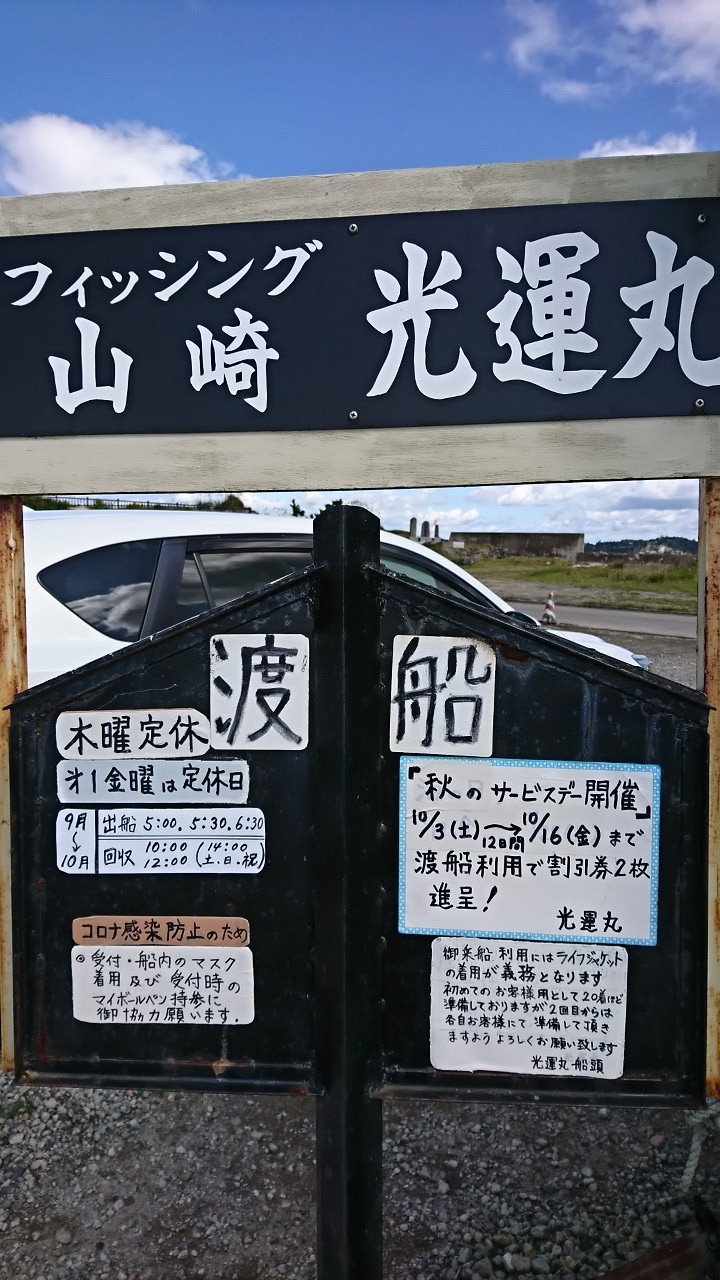 フィッシング
山崎
光運丸
渡船
木曜定休
才1金曜は定休日
9月〜10月
出船 5:00.5:30.6:30
回収 10:00 12:00 (14:00 土.日.祝)
コロナ感染防止のため
◎受付・船内のマスク
着用及び受付時の
マイボールペン持参に
御協力願います.
「秋のサービスデー開催」
10/3(土)→10/16(金)まで
12日間
渡船利用で割引券2枚
進呈!
光運丸
御乗船利用にはライフジャケット
の着用が義務となります
初めてのお客様用として20着ほど
準備しておりますが2回目からは
各自お客様にて準備して頂き
ますようよろしくお願い致します
光運丸 船頭